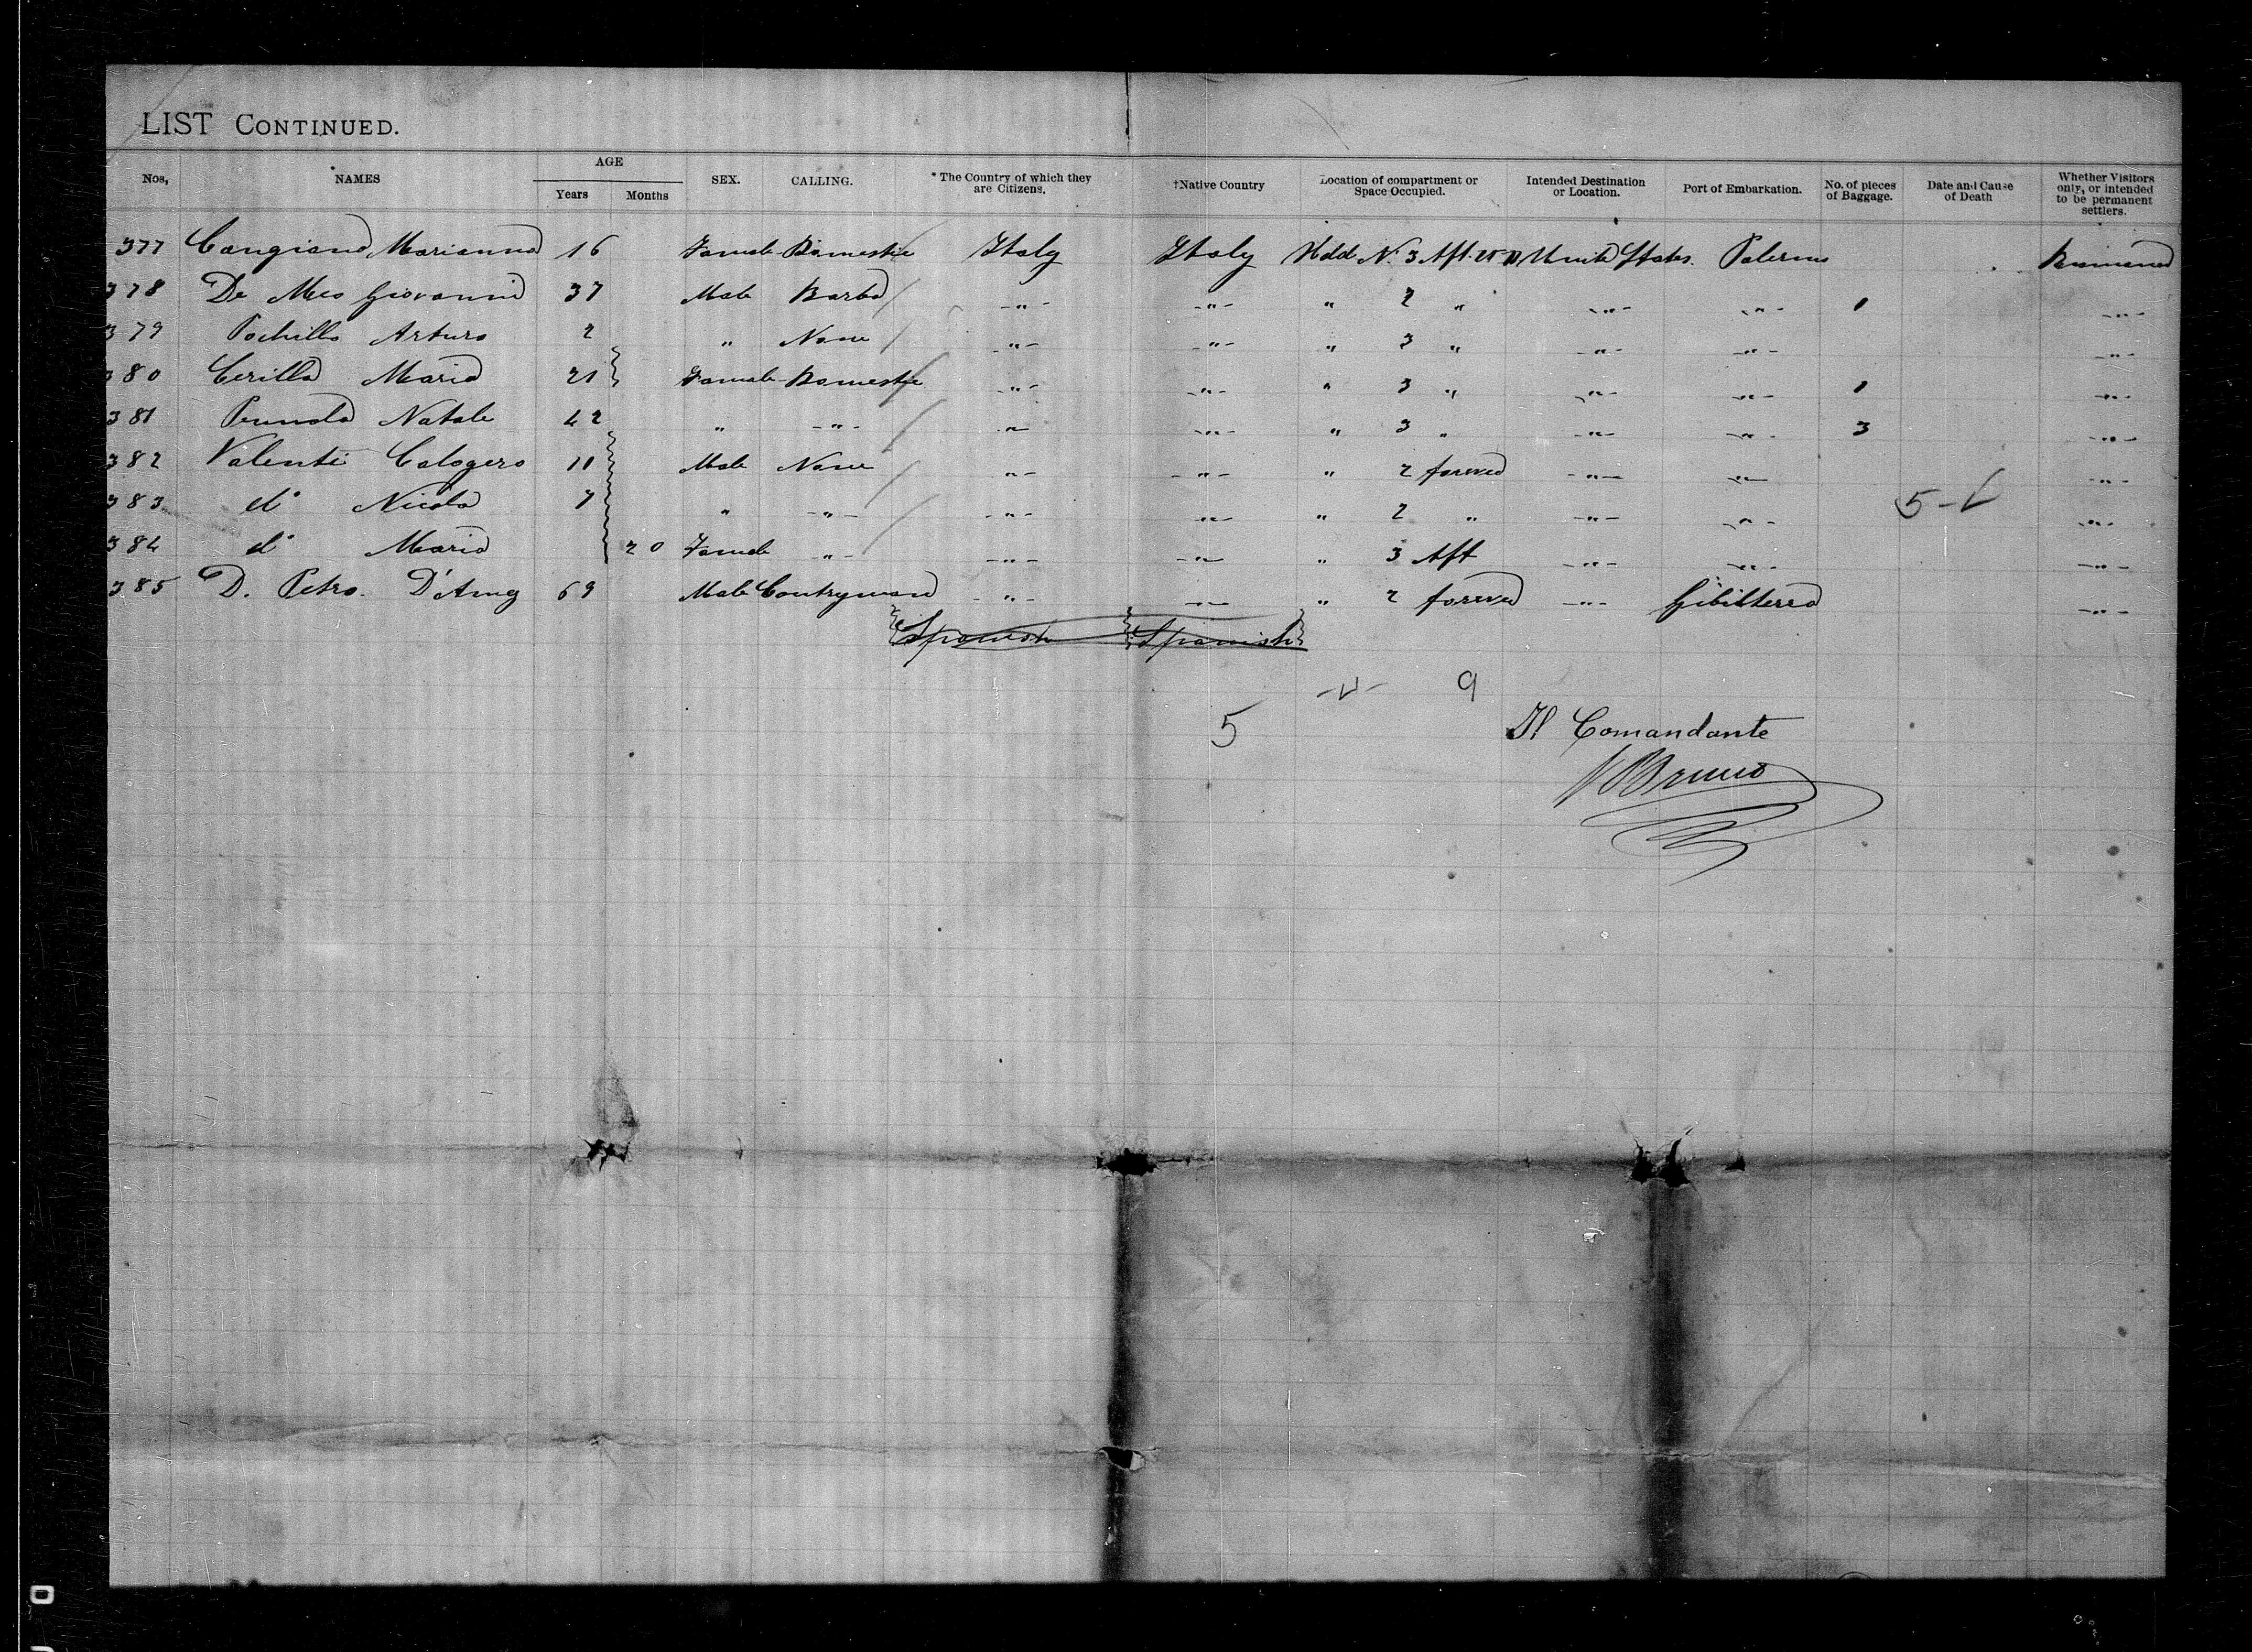 LIST CONTINUED.
Nos, NAMES AGE Years Months SEX. CALLING. * The Country of which they are Citizens. †Native Country Location of compartment or Space Occupied. Intended Destination or Location. Port of Embarkation. No. of pieces of Baggage. Date and Cause of Death Whether Visitors only, or intended to be permanent settlers.
377 Cangiano Marianna 16 Female Domestic Italy Italy N. 3 Aft United States. Palermo
378 De Meo Giovanni 37 Male -"- -"- " 2 " -"- -"- 1 -"-
379 Arturo 2 " None -"- -"- " 3 " -"- -"- -"-
380 Cerilla Maria 21 Female Domestic -"- -"- " 3 " -"- -"- 1 -"-
381 Natale 42 " -"- -"- -"- " 3 " -"- -"- 3 -"-
382 Valenti Calogero 11 Male None -"- -"- " 2 forwed -"- -"- -"-
383 d° Nicola 7 " -"- -"- -"- " 2 " -"- -"- 5 -"-
384 d° Maria 20 Female -"- -"- -"- " 3 Aft -"- -"- -"-
385 D. Petro. D'Amg 69 Male Contryman -"- -"- " 2 forwed -"- Gibilterra -"-
Spanish Spanish
9
5
Il Comandante
Bruno